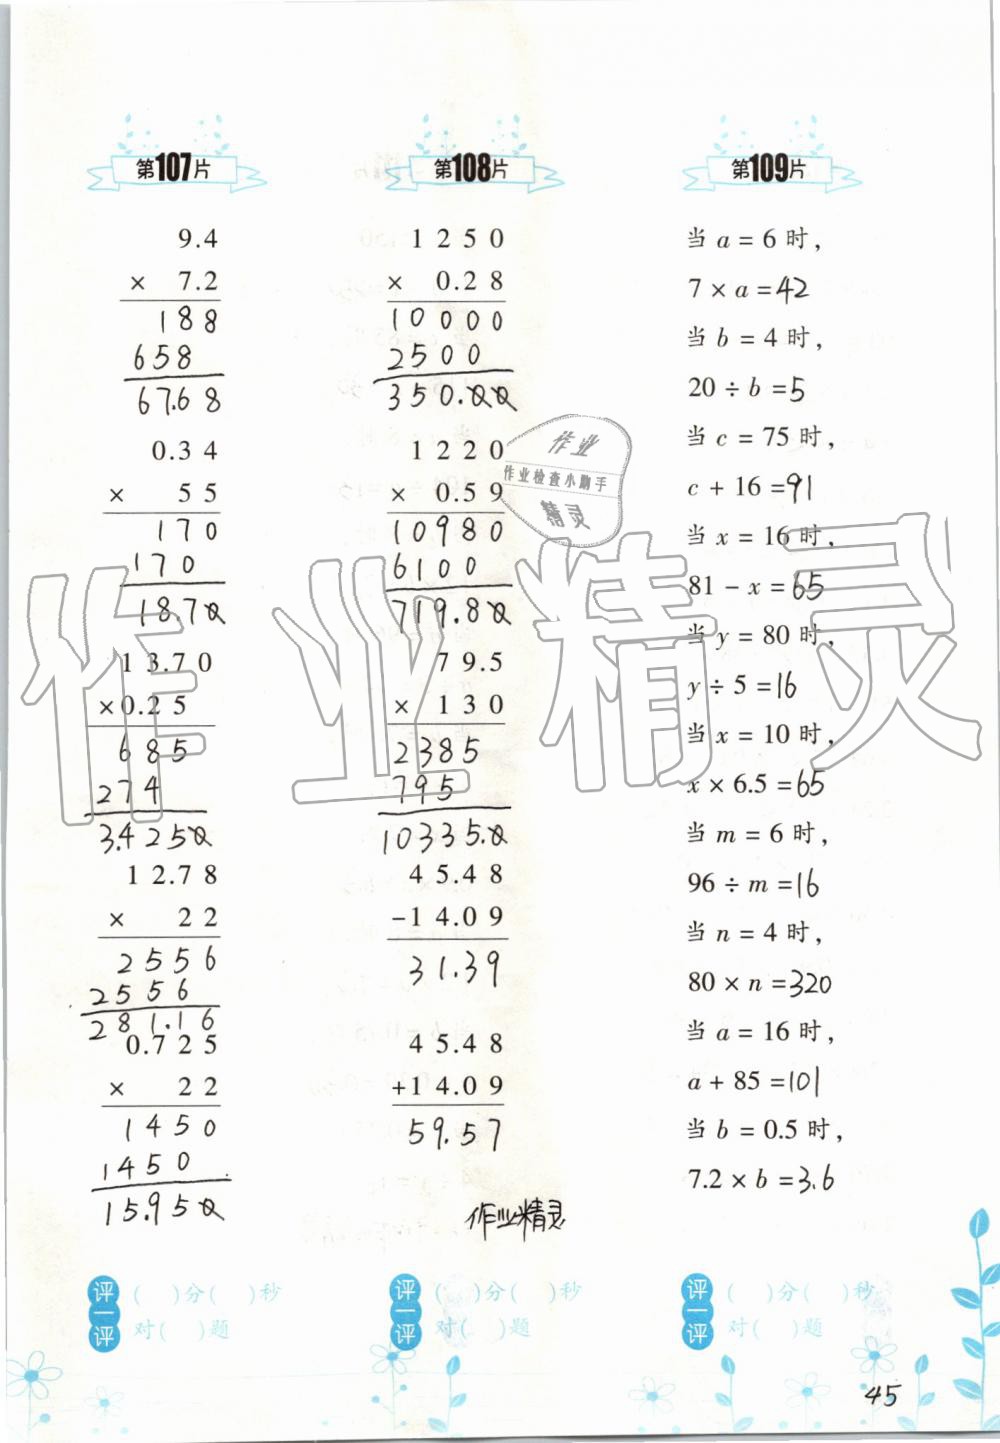 第107片
9.4
× 7.2
188
658
67.68
0.34
× 55
170
170
18.70
13.70
×0.25
685
274
3.4250
12.78
× 22
2556
2556
281.16
0.725
× 22
1450
1450
15.950
评一评
( )分( )秒
对( )题
第108片
1250
× 0.28
10000
2500
350.00
1220
× 0.59
10980
6100
719.80
79.5
× 130
2385
795
10335.0
45.48
-14.09
31.39
45.48
+14.09
59.57
作业精灵
评一评
( )分( )秒
对( )题
第109片
当 a = 6 时，
7 × a =42
当 b = 4 时，
20 ÷ b =5
当 c = 75 时，
c + 16 =91
当 x = 16 时，
81 − x =65
当 y = 80 时，
y ÷ 5 =16
当 x = 10 时，
x × 6.5 =65
当 m = 6 时，
96 ÷ m =16
当 n = 4 时，
80 × n =320
当 a = 16 时，
a + 85 =101
当 b = 0.5 时，
7.2 × b =3.6
评一评
( )分( )秒
对( )题
45
作业
作业检查小助手
精灵
作业精灵